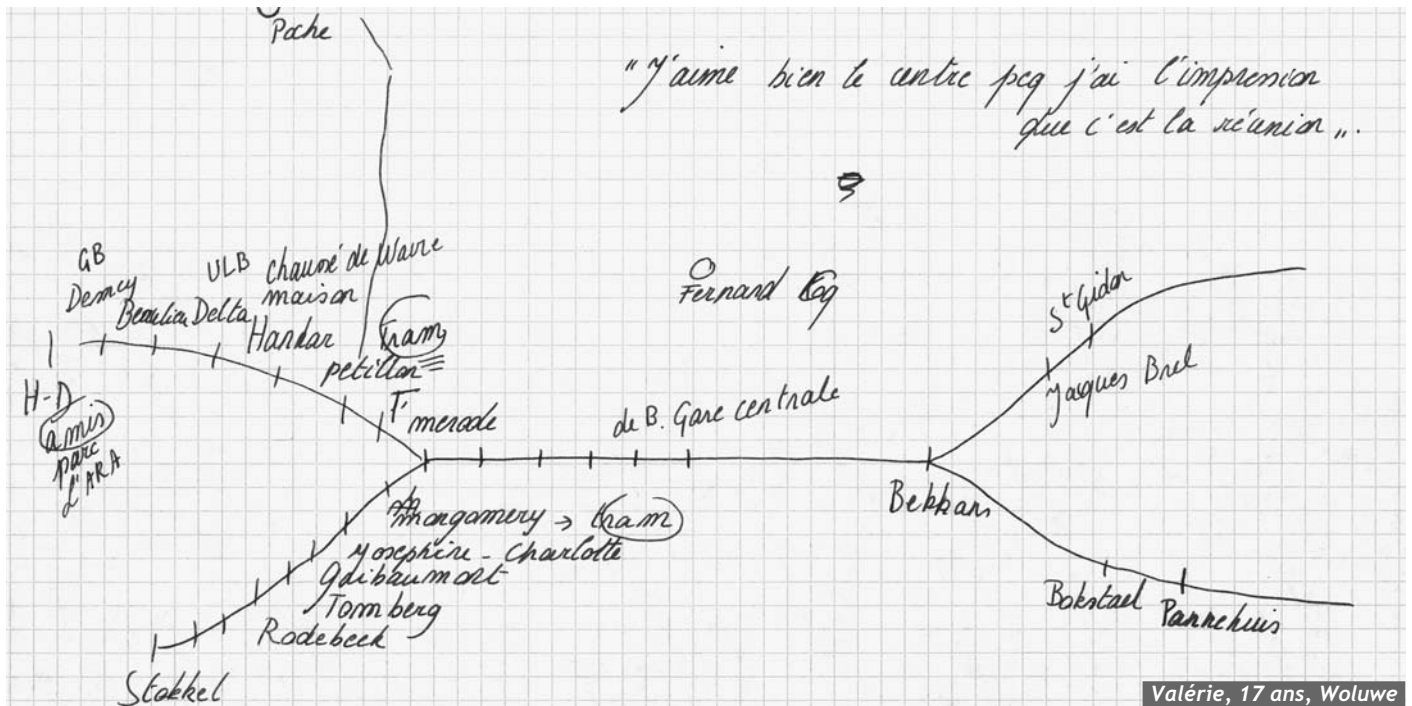 Poche
"J'aime bien le centre pcq j'ai l'impression
que c'est la réunion".
GB
Demey
Beaulieu
ULB
Delta
chaussé de Wavre
maison
Hankar
tram
petillon
T'
merode
H-D
amis
parc
L'ARA
Fernand Coq
de B. Gare centrale
St Gidon
Jacques Brel
Bekkans
Bokstael
Pannehuis
Mongomery → tram
Josephine - Charlotte
Goibaumont
Tomberg
Rodebeek
Stokkel
Valérie, 17 ans, Woluwe